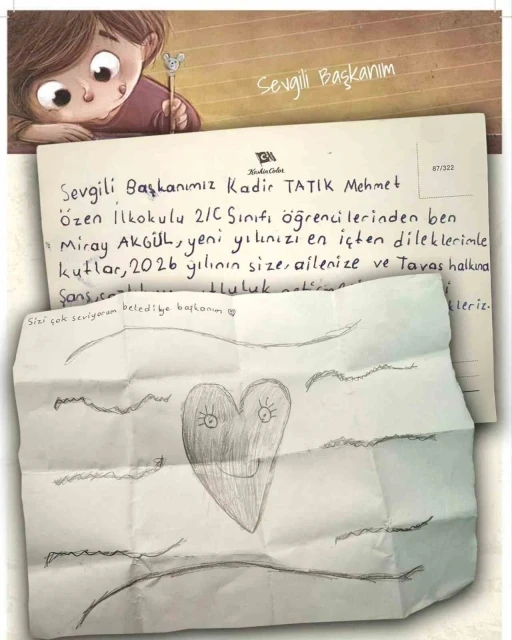 Sevgili Başkanım
KeskinColor
87/322
Sevgili Başkanımız Kadir TATIK Mehmet
Özen İlkokulu 2/C Sınıfı öğrencilerinden ben
Miray AKGÜL, yeni yılınızı en içten dileklerimle
kutlar, 2026 yılının size, ailenize ve Tavas halkına
Şans,
Sizi çok seviyorum belediye başkanım